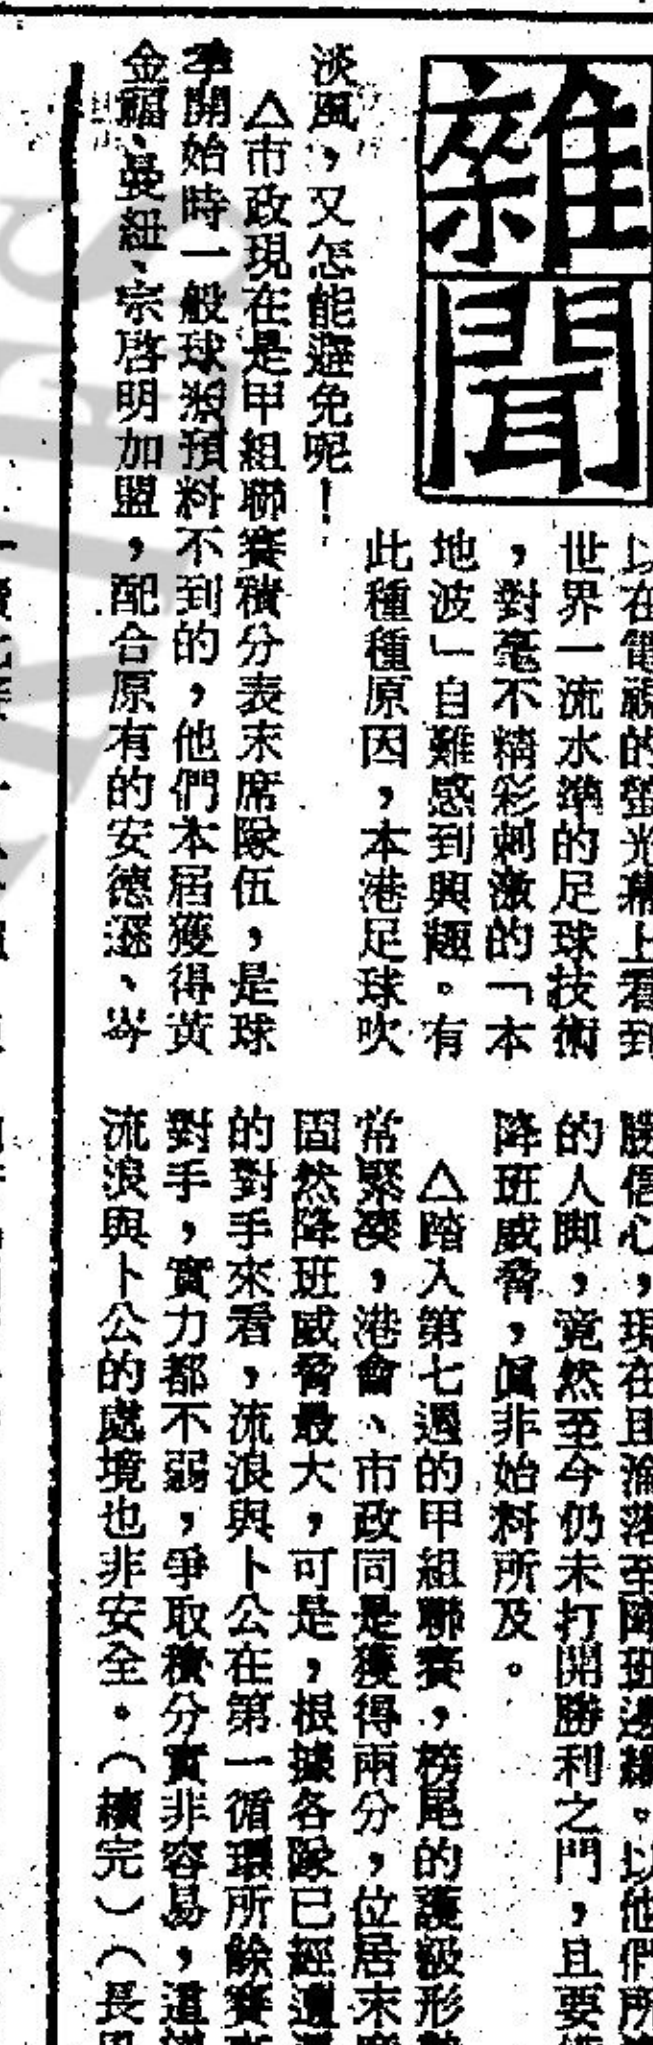 雜聞
以在電視的螢光幕上看到
世界一流水準的足球技術
，對毫不精彩刺激的「本
地波」自難感到興趣。有
此種種原因，本港足球吹
淡風，又怎能避免呢！
△市政現在是甲組聯賽積分表末席隊伍，是球
季開始時一般球類預料不到的，他們本屆獲得黃
金福、曼紐、宗啓明加盟，配合原有的安德遜、
勝信心，現在且淪落至降班邊緣。以他們所
的人脚，竟然至今仍未打開勝利之門，且要
降班威脅，眞非始料所及。
△踏入第七週的甲組聯賽，榜尾的護級形
常緊湊，港會、市政同是獲得兩分，位居末
固然降班威脅最大，可是，根據各隊已經遭
的對手來看，流浪與卜公在第一循環所餘賽
對手，實力都不弱，爭取積分實非容易，這
流浪與卜公的處境也非安全。（續完）（長